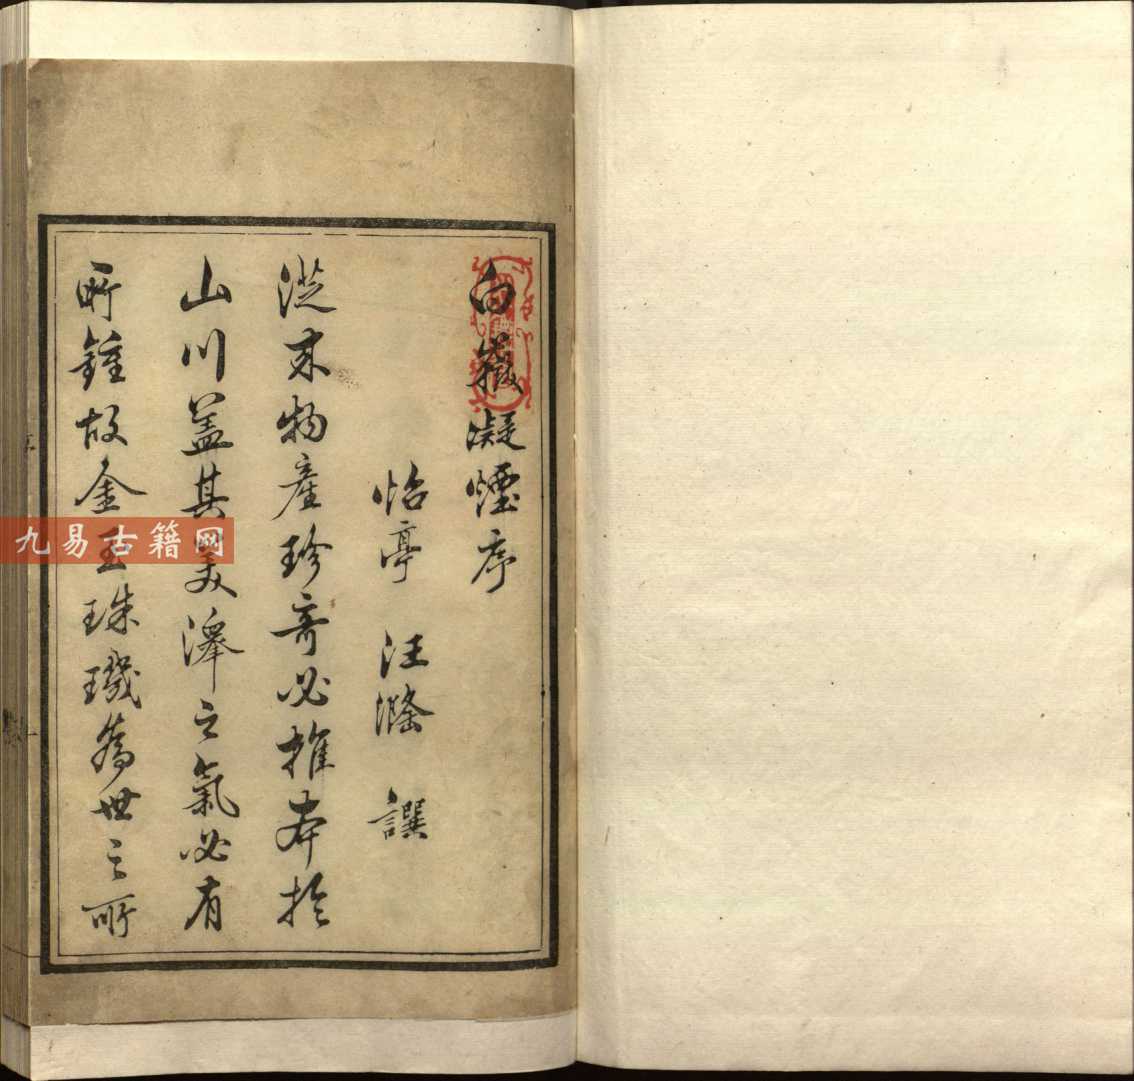 白嶽凝煙序
怡亭 汪滌 譔
從来物產珍奇必推本於
山川盖其美澤之氣必有
所鍾故金玉珠璣為世之所
九易古籍网